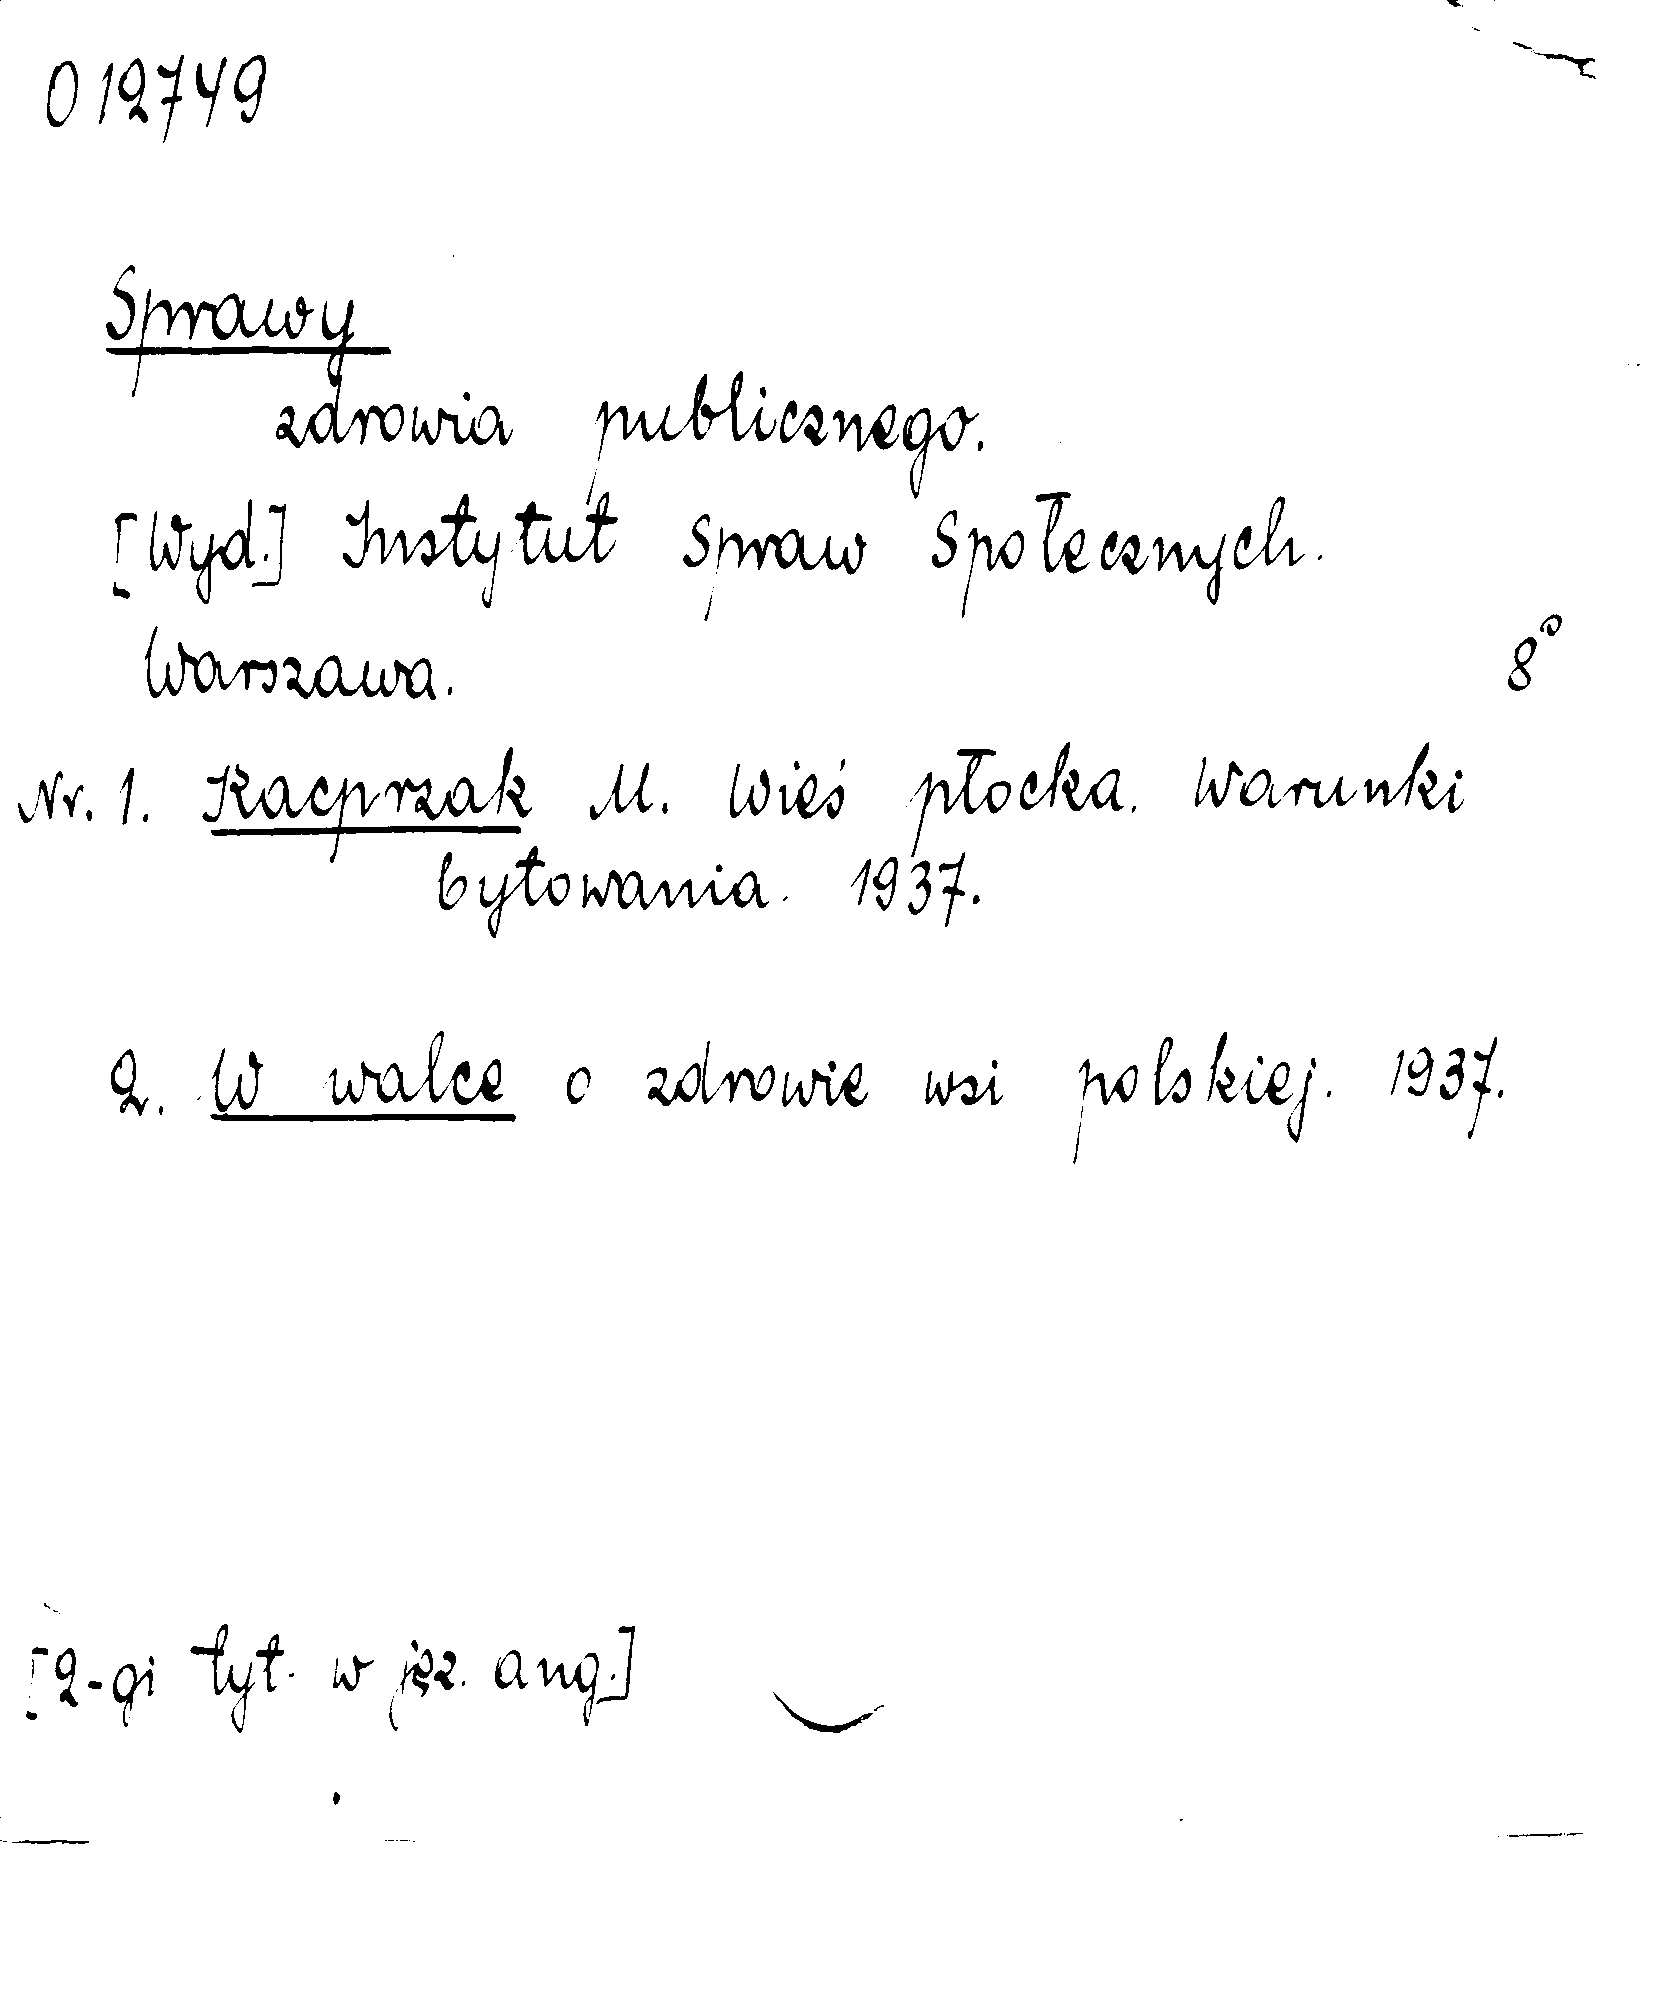 012749
Sprawy
zdrowia publicznego.
[Wyd.] Instytut Spraw Społecznych.
Warszawa. 8°
Nr. 1. Kacprzak M. Wieś płocka. Warunki
bytowania. 1937.
2. W walce o zdrowie wsi polskiej. 1937.
[2-gi tyt. w jęz. ang.]